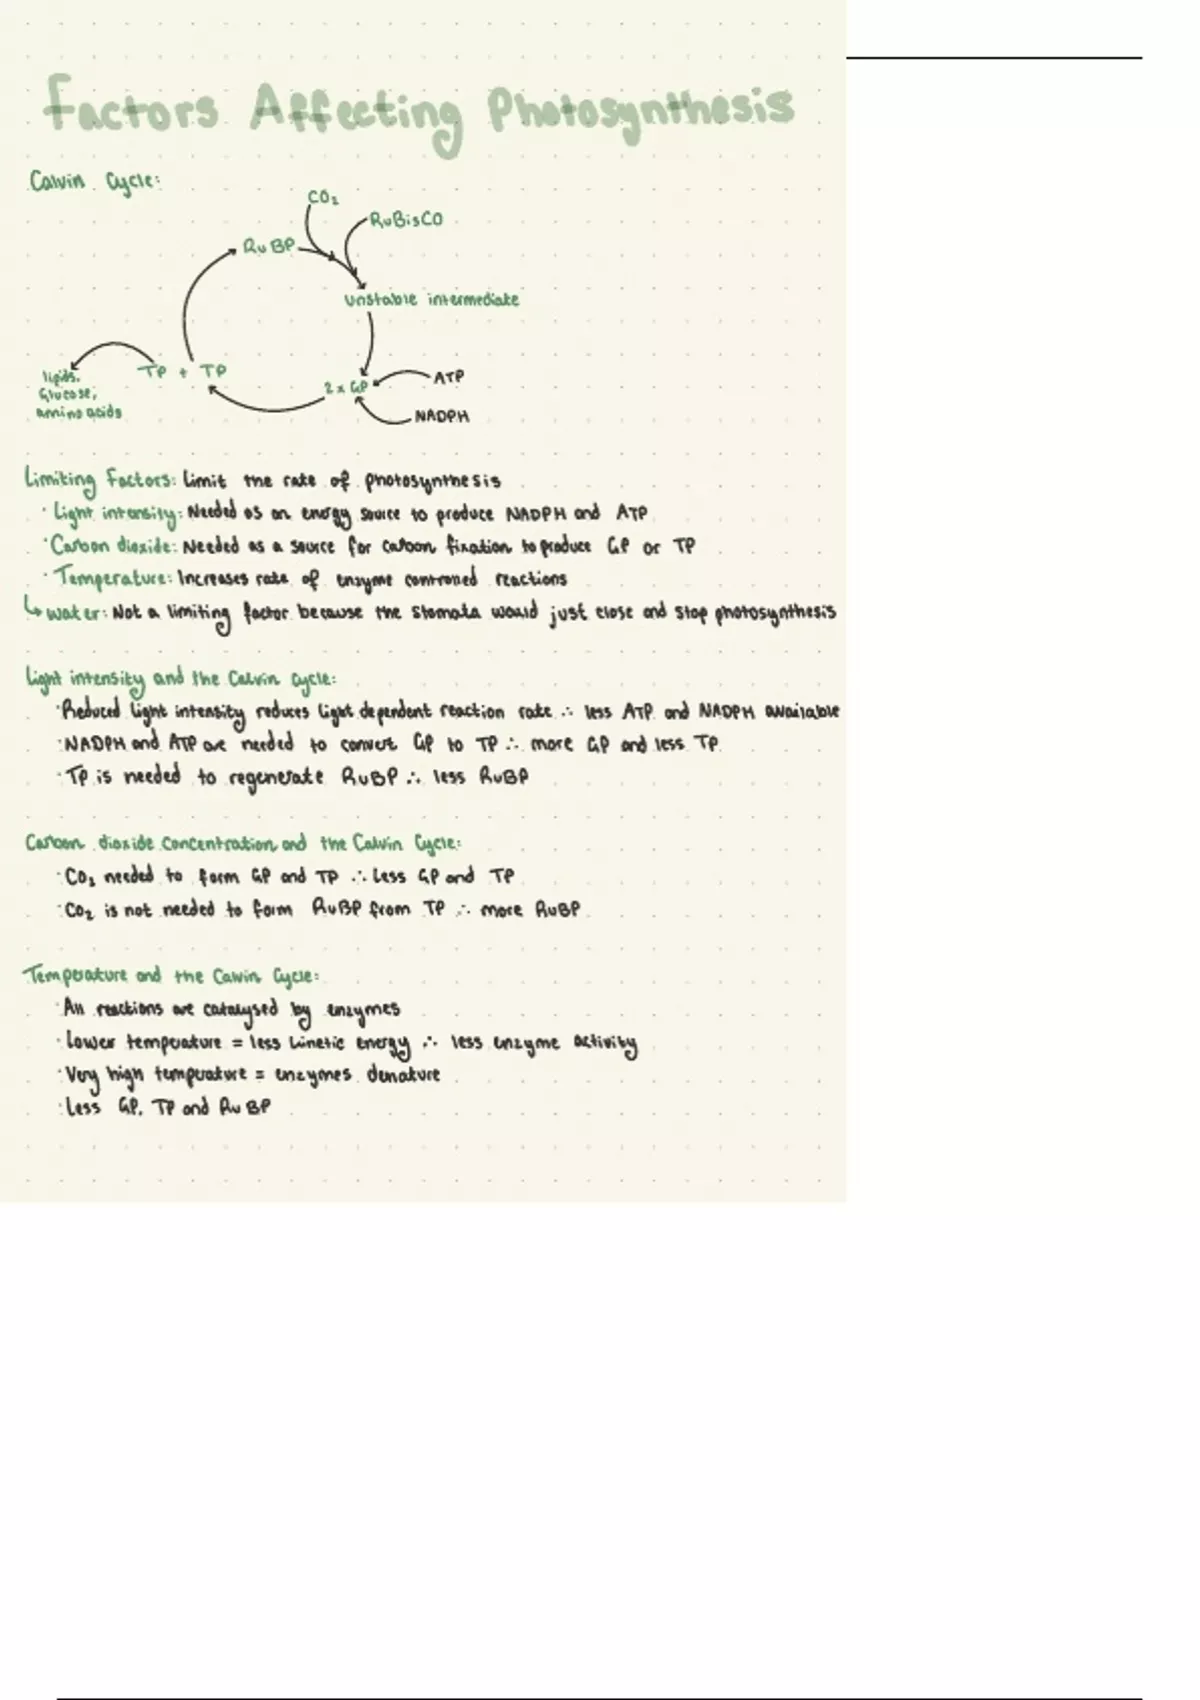 Factors Affecting Photosynthesis
Calvin Cycle:
CO₂
RuBisCO
RuBP
unstable intermediate
TP + TP
lipids,
Glucose,
amino acids
2 x GP
ATP
NADPH
Limiting Factors: Limit the rate of photosynthesis
· Light intensity: Needed as an energy source to produce NADPH and ATP
· Carbon dioxide: Needed as a source for carbon fixation to produce GP or TP
· Temperature: Increases rate of enzyme controlled reactions
↳ water: Not a limiting factor because the stomata would just close and stop photosynthesis
Light intensity and the Calvin cycle:
· Reduced light intensity reduces light dependent reaction rate ∴ less ATP and NADPH available
· NADPH and ATP are needed to convert GP to TP ∴ more GP and less TP
· TP is needed to regenerate RuBP ∴ less RuBP
Carbon dioxide concentration and the Calvin Cycle:
· CO₂ needed to form GP and TP ∴ less GP and TP
· CO₂ is not needed to form RuBP from TP ∴ more RuBP
Temperature and the Calvin Cycle:
· All reactions are catalysed by enzymes
· Lower temperature = less kinetic energy ∴ less enzyme activity
· Very high temperature = enzymes denature
· Less GP, TP and RuBP